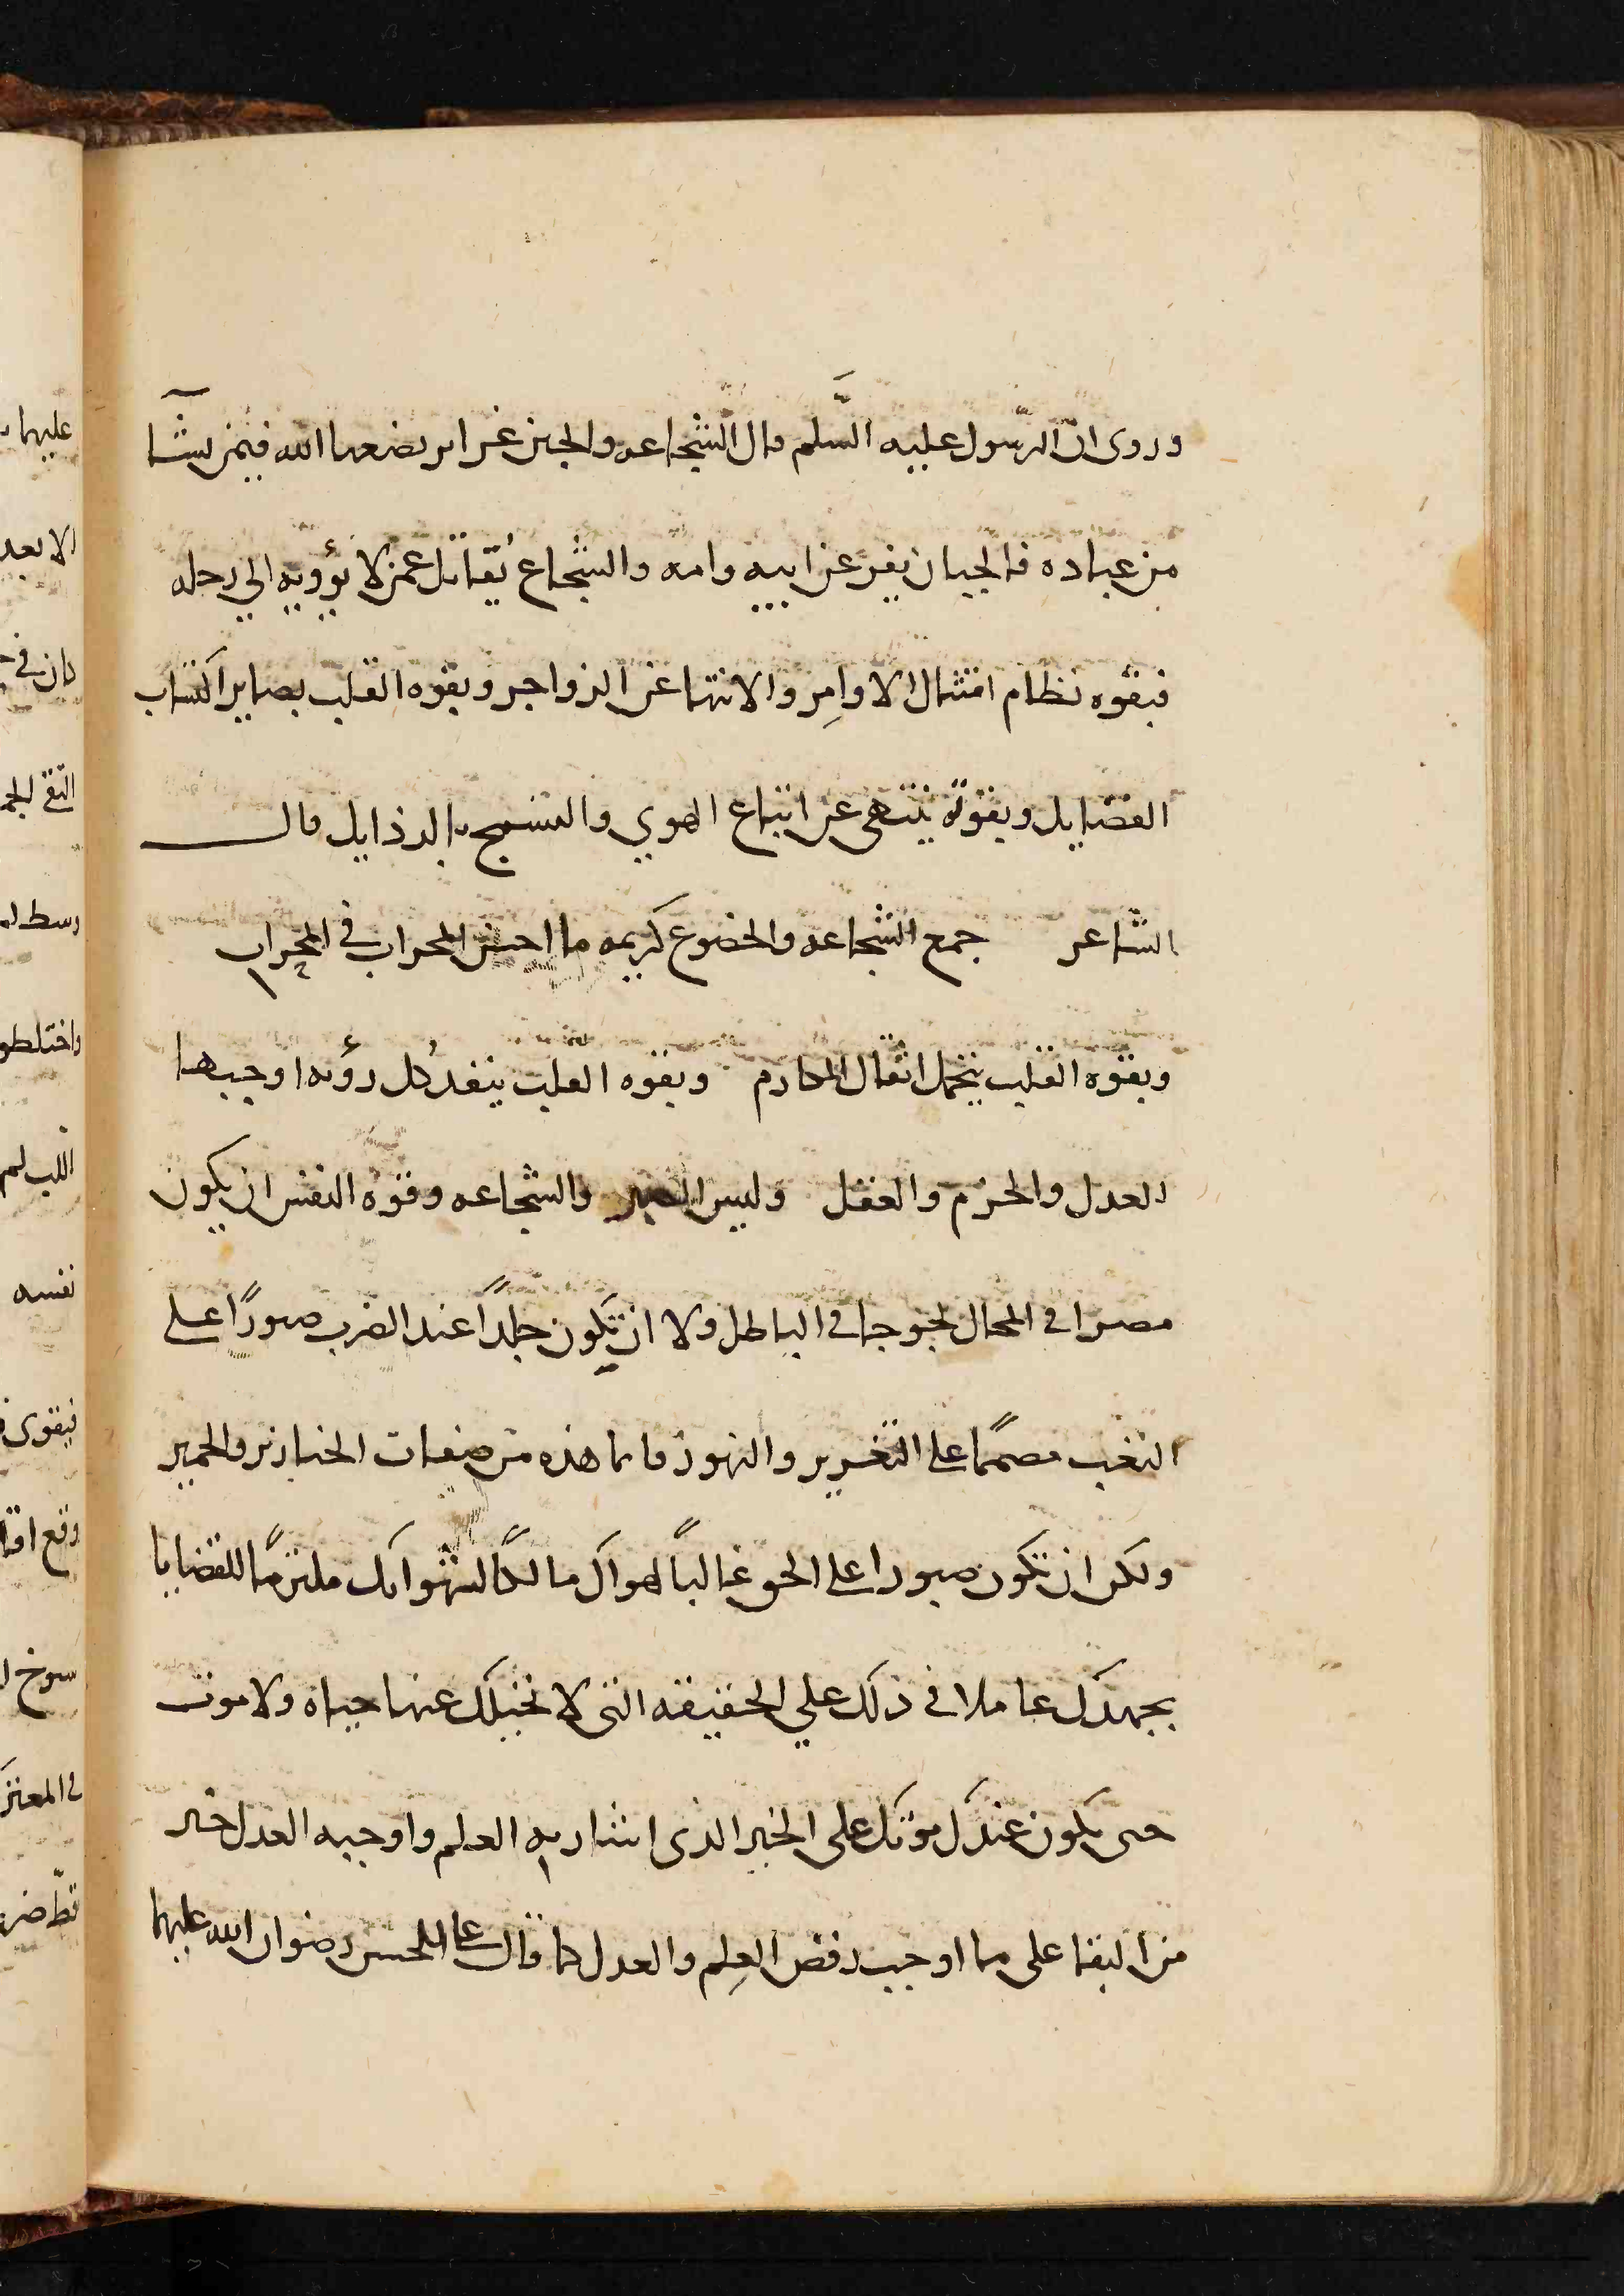 وروى ان الرّسول عليه السَّلم قال الشجاعه والجبن غرايز يضعها الله فيمن يشآ
من عباده فالجبان يفر عن ابيه وامه والشجاع يُقاتل عمن لا يؤويه الى رحله
فبقوه نظام امتثال الاوامِر والانتها عن الزواجر وبقوه القلب يصابر اكتساب
الفضايل وبقوته ينتهى عن اتباع الهوي و بالرذايل قال
الشاعر جمع الشجاعه والخضوع لربه ما احسن المحراب في المحراب
وبقوه القلب يتحمل اثقال المكارم وبقوه القلب ينفد كُل اوجبها
العدل والحزم والعقل وليس الصبر والشجاعه وقوه النفس ان يكون
مصرا في المحال لجوجا في الباطل ولا ان تكون جلدًا عند الضرب صبورًا على
التعب مصممًا على التغرير والتهور فانما هذه من صفات الخنازير والحمير
ولكن ان تكون صبورا على الحق غالبًا لهواك مالكًا لشهواتك ملتزمًا للقضايا
بجهدك عاملا في ذلك علي الحقيقه التى لا عنها حياه ولا موت
حتى يكون عندك موتك على الخير الذى اشار به العلم واوجبه العدل خير
من البقا على ما اوجب رفض العِلم والعدل كما قال على الحسن رضوان الله عليهما
عليهما
الا بعد
كان في
وسط
واختلطو
نفسه
فيقوى
وقع